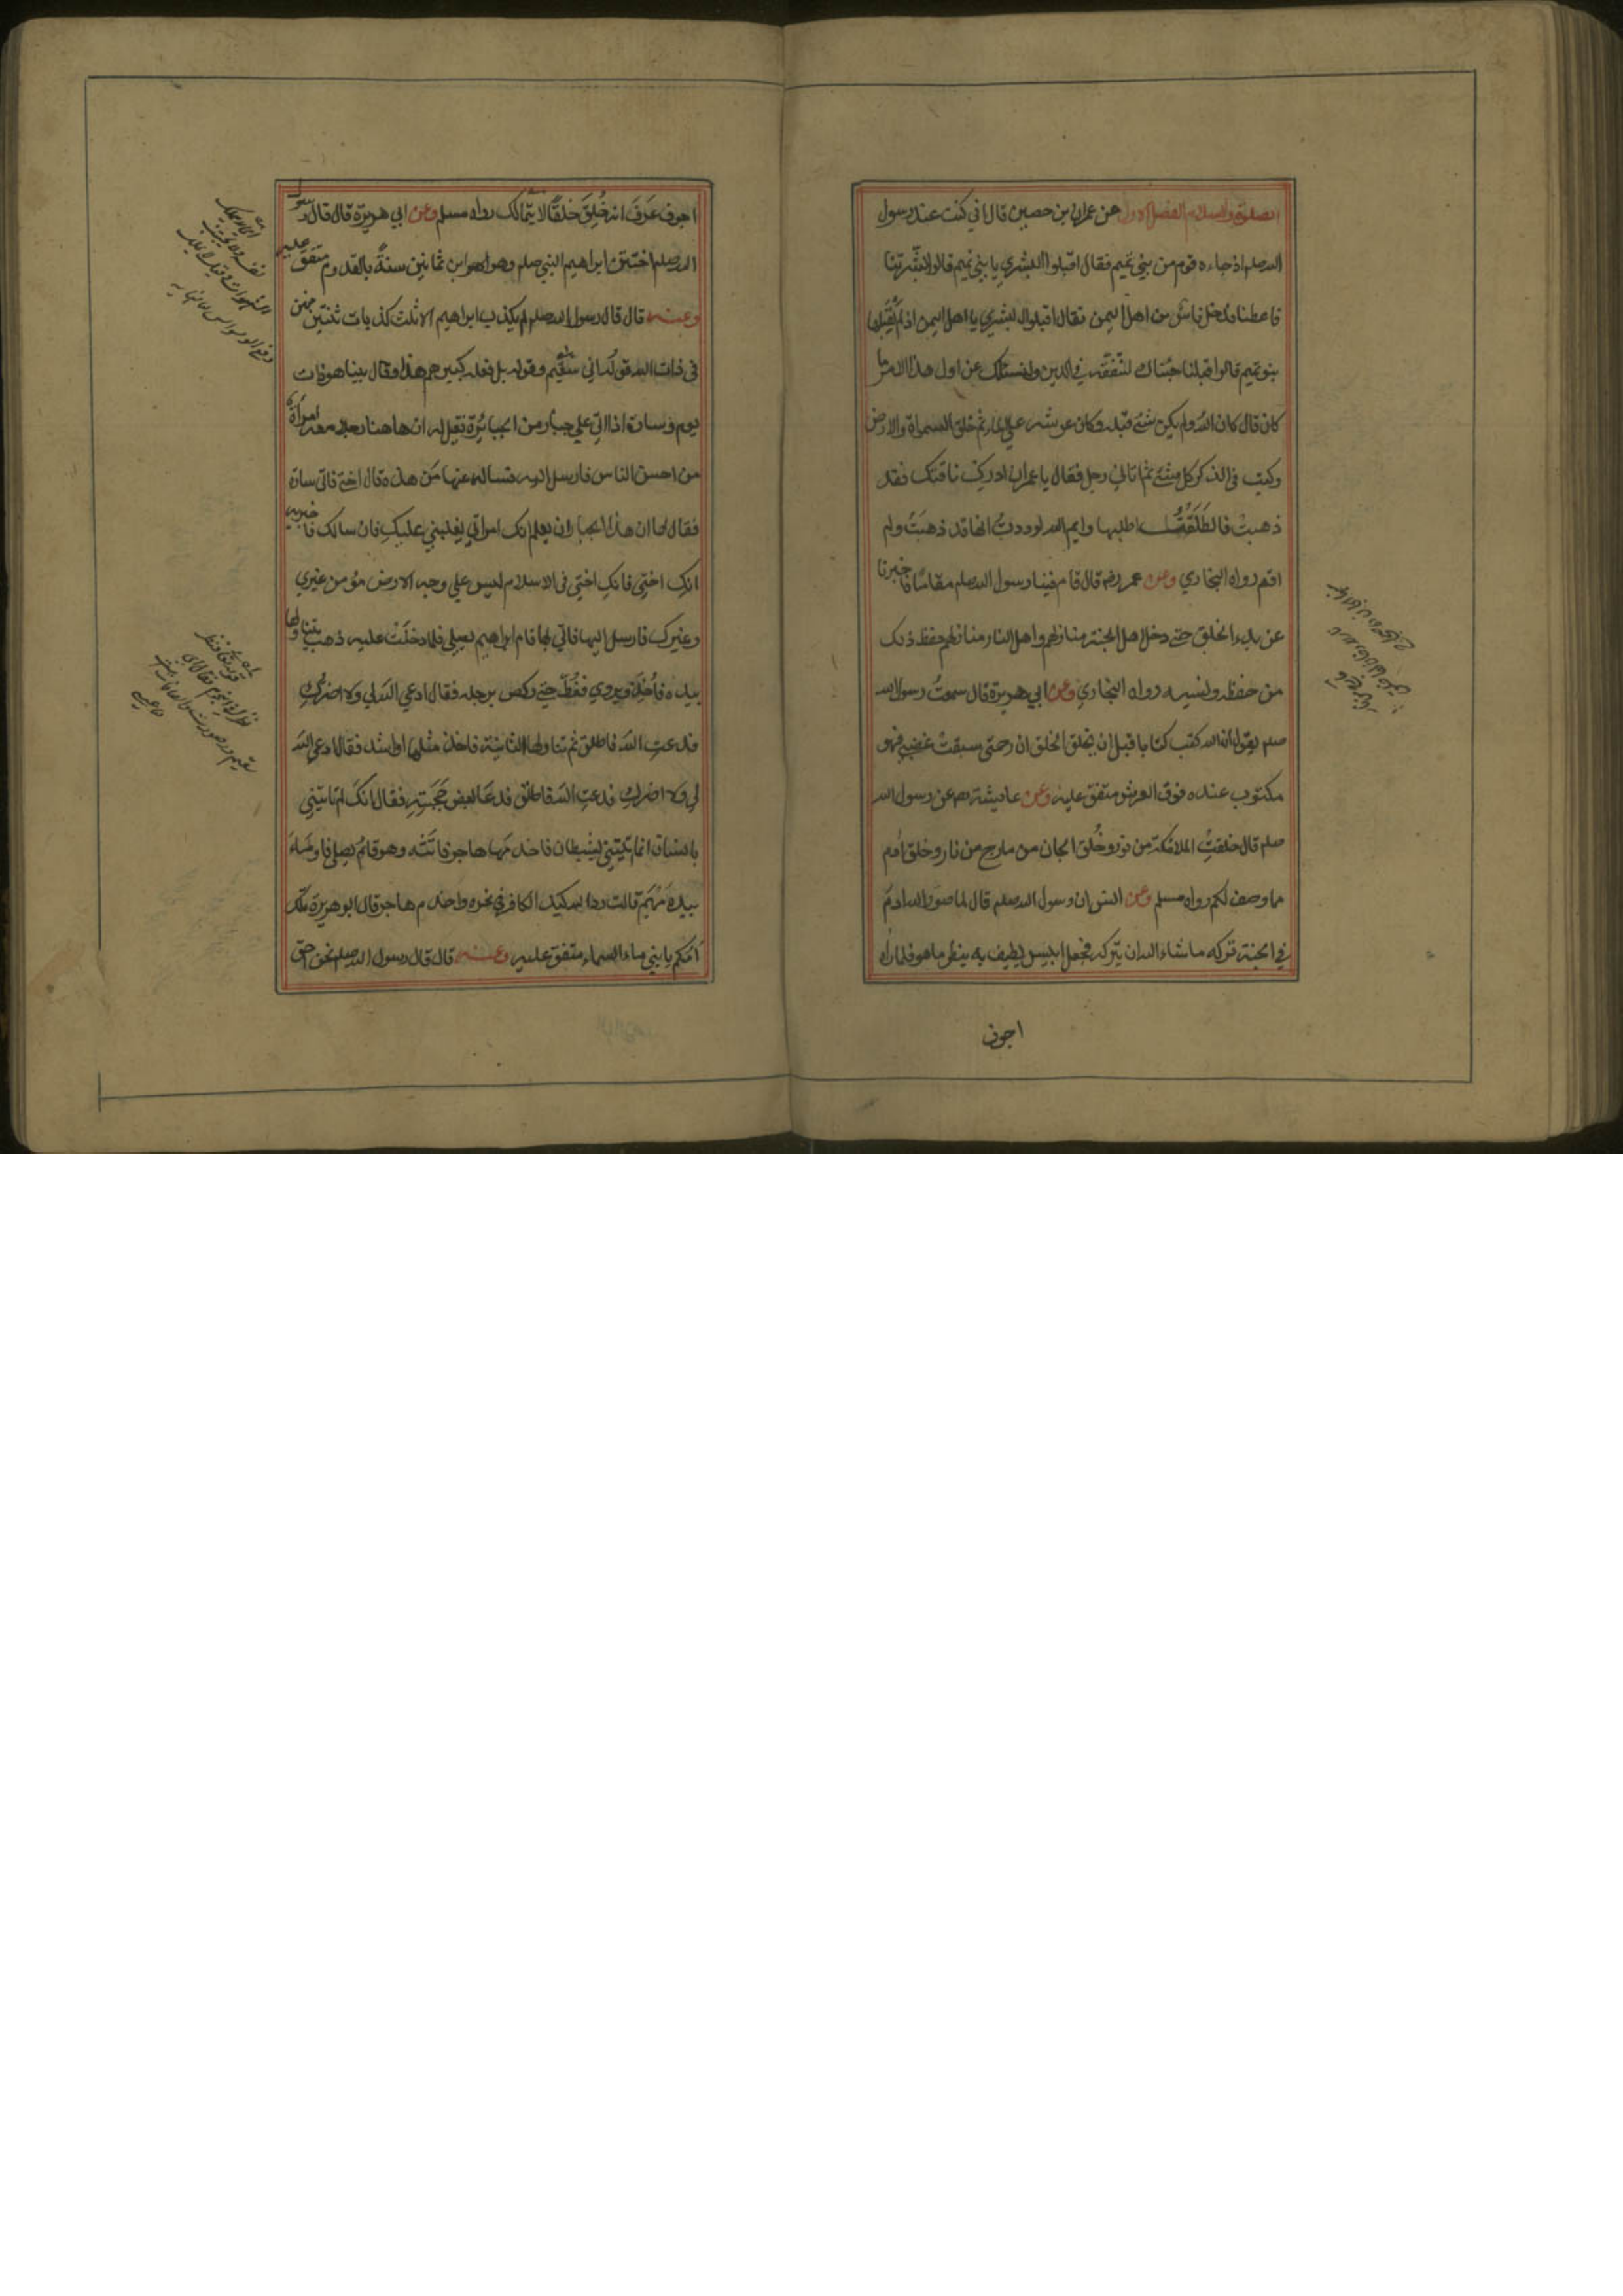 الصلوة والسلام الفصل الاول عن عمران بن حصين قال اني كنت عند رسول
الله صلعم اذ جاءه قوم من بني تميم فقال اقبلوا البشري يا بني تميم قالوا بشرتنا
فاعطنا فدخل ناس من اهل اليمن فقال اقبلوا البشري يا اهل اليمن اذ لم يقبلها
بنو تميم قالوا قبلنا جئناك لنتفقه في الدين ولنسئلك عن اول هذا الامر ما
كان قال كان الله ولم يكن شئ قبله وكان عرشه علي الماء ثم خلق السموات والارض
وكتب في الذكر كل شئ ثم اتاني رجل فقال يا عمران ادرك ناقتك فقد
ذهبت فانطلقت اطلبها وايم الله لوددت انها قد ذهبت ولم
اقم رواه البخاري وعن عمر رضه قال قام فينا رسول الله صلعم مقاما فاخبرنا
عن بدء الخلق حتي دخل اهل الجنة منازلهم واهل النار منازلهم حفظ ذلك
من حفظه ونسيه رواه البخاري وعن ابي هريرة قال سمعت رسول الله
صلعم يقول ان الله كتب كتابا قبل ان يخلق الخلق ان رحمتي سبقت غضبي فهو
مكتوب عنده فوق العرش متفق عليه وعن عايشة رضه عن رسول الله
صلعم قال خلقت الملائكة من نور وخلق الجان من مارج من نار وخلق ادم
مما وصف لكم رواه مسلم وعن انس ان رسول الله صلعم قال لما صور الله ادم
في الجنة تركه ما شاء الله ان يتركه فجعل ابليس يطيف به ينظر ما هو فلما راه
اجوف
اجوف عرف انه خلق خلقا لا يتمالك رواه مسلم وعن ابي هريرة قال قال رسول
الله صلعم اختتن ابراهيم النبي صلعم وهو ابن ثمانين سنة بالقدوم متفق عليه
وعنه قال قال رسول الله صلعم لم يكذب ابراهيم الا ثلث كذبات ثنتين منهن
في ذات الله قوله اني سقيم وقوله بل فعله كبيرهم هذا وقال بينا هو ذات
يوم وسارة اذ اتي علي جبار من الجبابرة فقيل له ان هاهنا رجلا معه امرأة
من احسن الناس فارسل اليه فساله عنها من هذه قال اختي فاتي سارة
فقال لها ان هذا الجبار ان يعلم انك امراتي يغلبني عليك فان سالك فاخبريه
انك اختي فانك اختي في الاسلام ليس علي وجه الارض مؤمن غيري
وغيرك فارسل اليها فاتي بها قام ابراهيم يصلي فلما دخلت عليه ذهب يتناولها
بيده فاخذ ويروي فغط حتي ركض برجله فقال ادعي الله لي ولا اضرك
فدعت الله فاطلق ثم تناولها الثانية فاخذ مثلها او اشد فقال ادعي الله
لي ولا اضرك فدعت الله فاطلق فدعا بعض حجبته فقال انك لم تاتيني
بانسان انما اتيتني بشيطان فاخدمها هاجر فاتته وهو قائم يصلي فاومأ
بيده مهيم قالت رد الله كيد الكافر في نحره واخدم هاجر قال ابو هريرة تلك
امكم يا بني ماء السماء متفق عليه وعنه قال قال رسول الله صلعم نحن احق